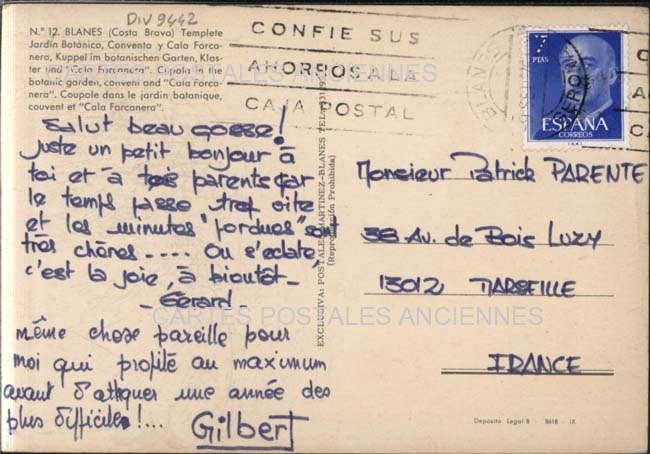 DIV 9442
N.º 12. BLANES (Costa Brava) Templete
Jardín Botánico, Convento y Cala Forca-
nera, Kuppel im botanischen Garten, Klos-
ter und "Cala Forcanera". Cupola in the
botanic garden, convent and "Cala Forca-
nera". Coupole dans le jardin botanique,
couvent et "Cala Forcanera".
CONFIE SUS
AHORROS A LA
CAJA POSTAL
BLANES
GERONA
7
PTAS
ESPAÑA
CORREOS
CARTES POSTALES ANCIENNES
Salut beau gosse!
Juste un petit bonjour à
toi et à tes parents car
le temps passe trop vite
et les minutes "perdues" sont
très chères .... On s'éclate
c'est la joie, à bientôt -
- Gérard -
même chose pareille pour
moi qui profite au maximum
avant d'attquer une année des
plus difficiles !...
Gilbert
EXCLUSIVA: POSTALES MARTINEZ-BLANES
(Reproducción Prohibida)
Monsieur Patrick PARENTE
38 Av. de Bois LUZY
13012 MARSEILLE
FRANCE
CARTES POSTALES ANCIENNES
Depósito Legal B - 8618 - IX